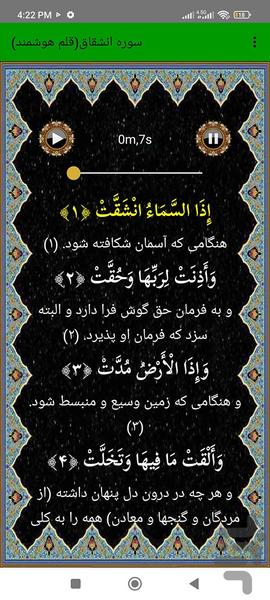 4:22 PM
سوره انشقاق(قلم هوشمند)
0m,7s
إِذَا السَّمَاءُ انْشَقَّتْ ﴿۱﴾
هنگامی که آسمان شکافته شود. (۱)
وَأَذِنَتْ لِرَبِّهَا وَحُقَّتْ ﴿۲﴾
و به فرمان حق گوش فرا دارد و البته
سزد که فرمان او پذیرد. (۲)
وَإِذَا الْأَرْضُ مُدَّتْ ﴿۳﴾
و هنگامی که زمین وسیع و منبسط شود.
(۳)
وَأَلْقَتْ مَا فِيهَا وَتَخَلَّتْ ﴿۴﴾
و هر چه در درون دل پنهان داشته (از
مردگان و گنجها و معادن) همه را به کلی